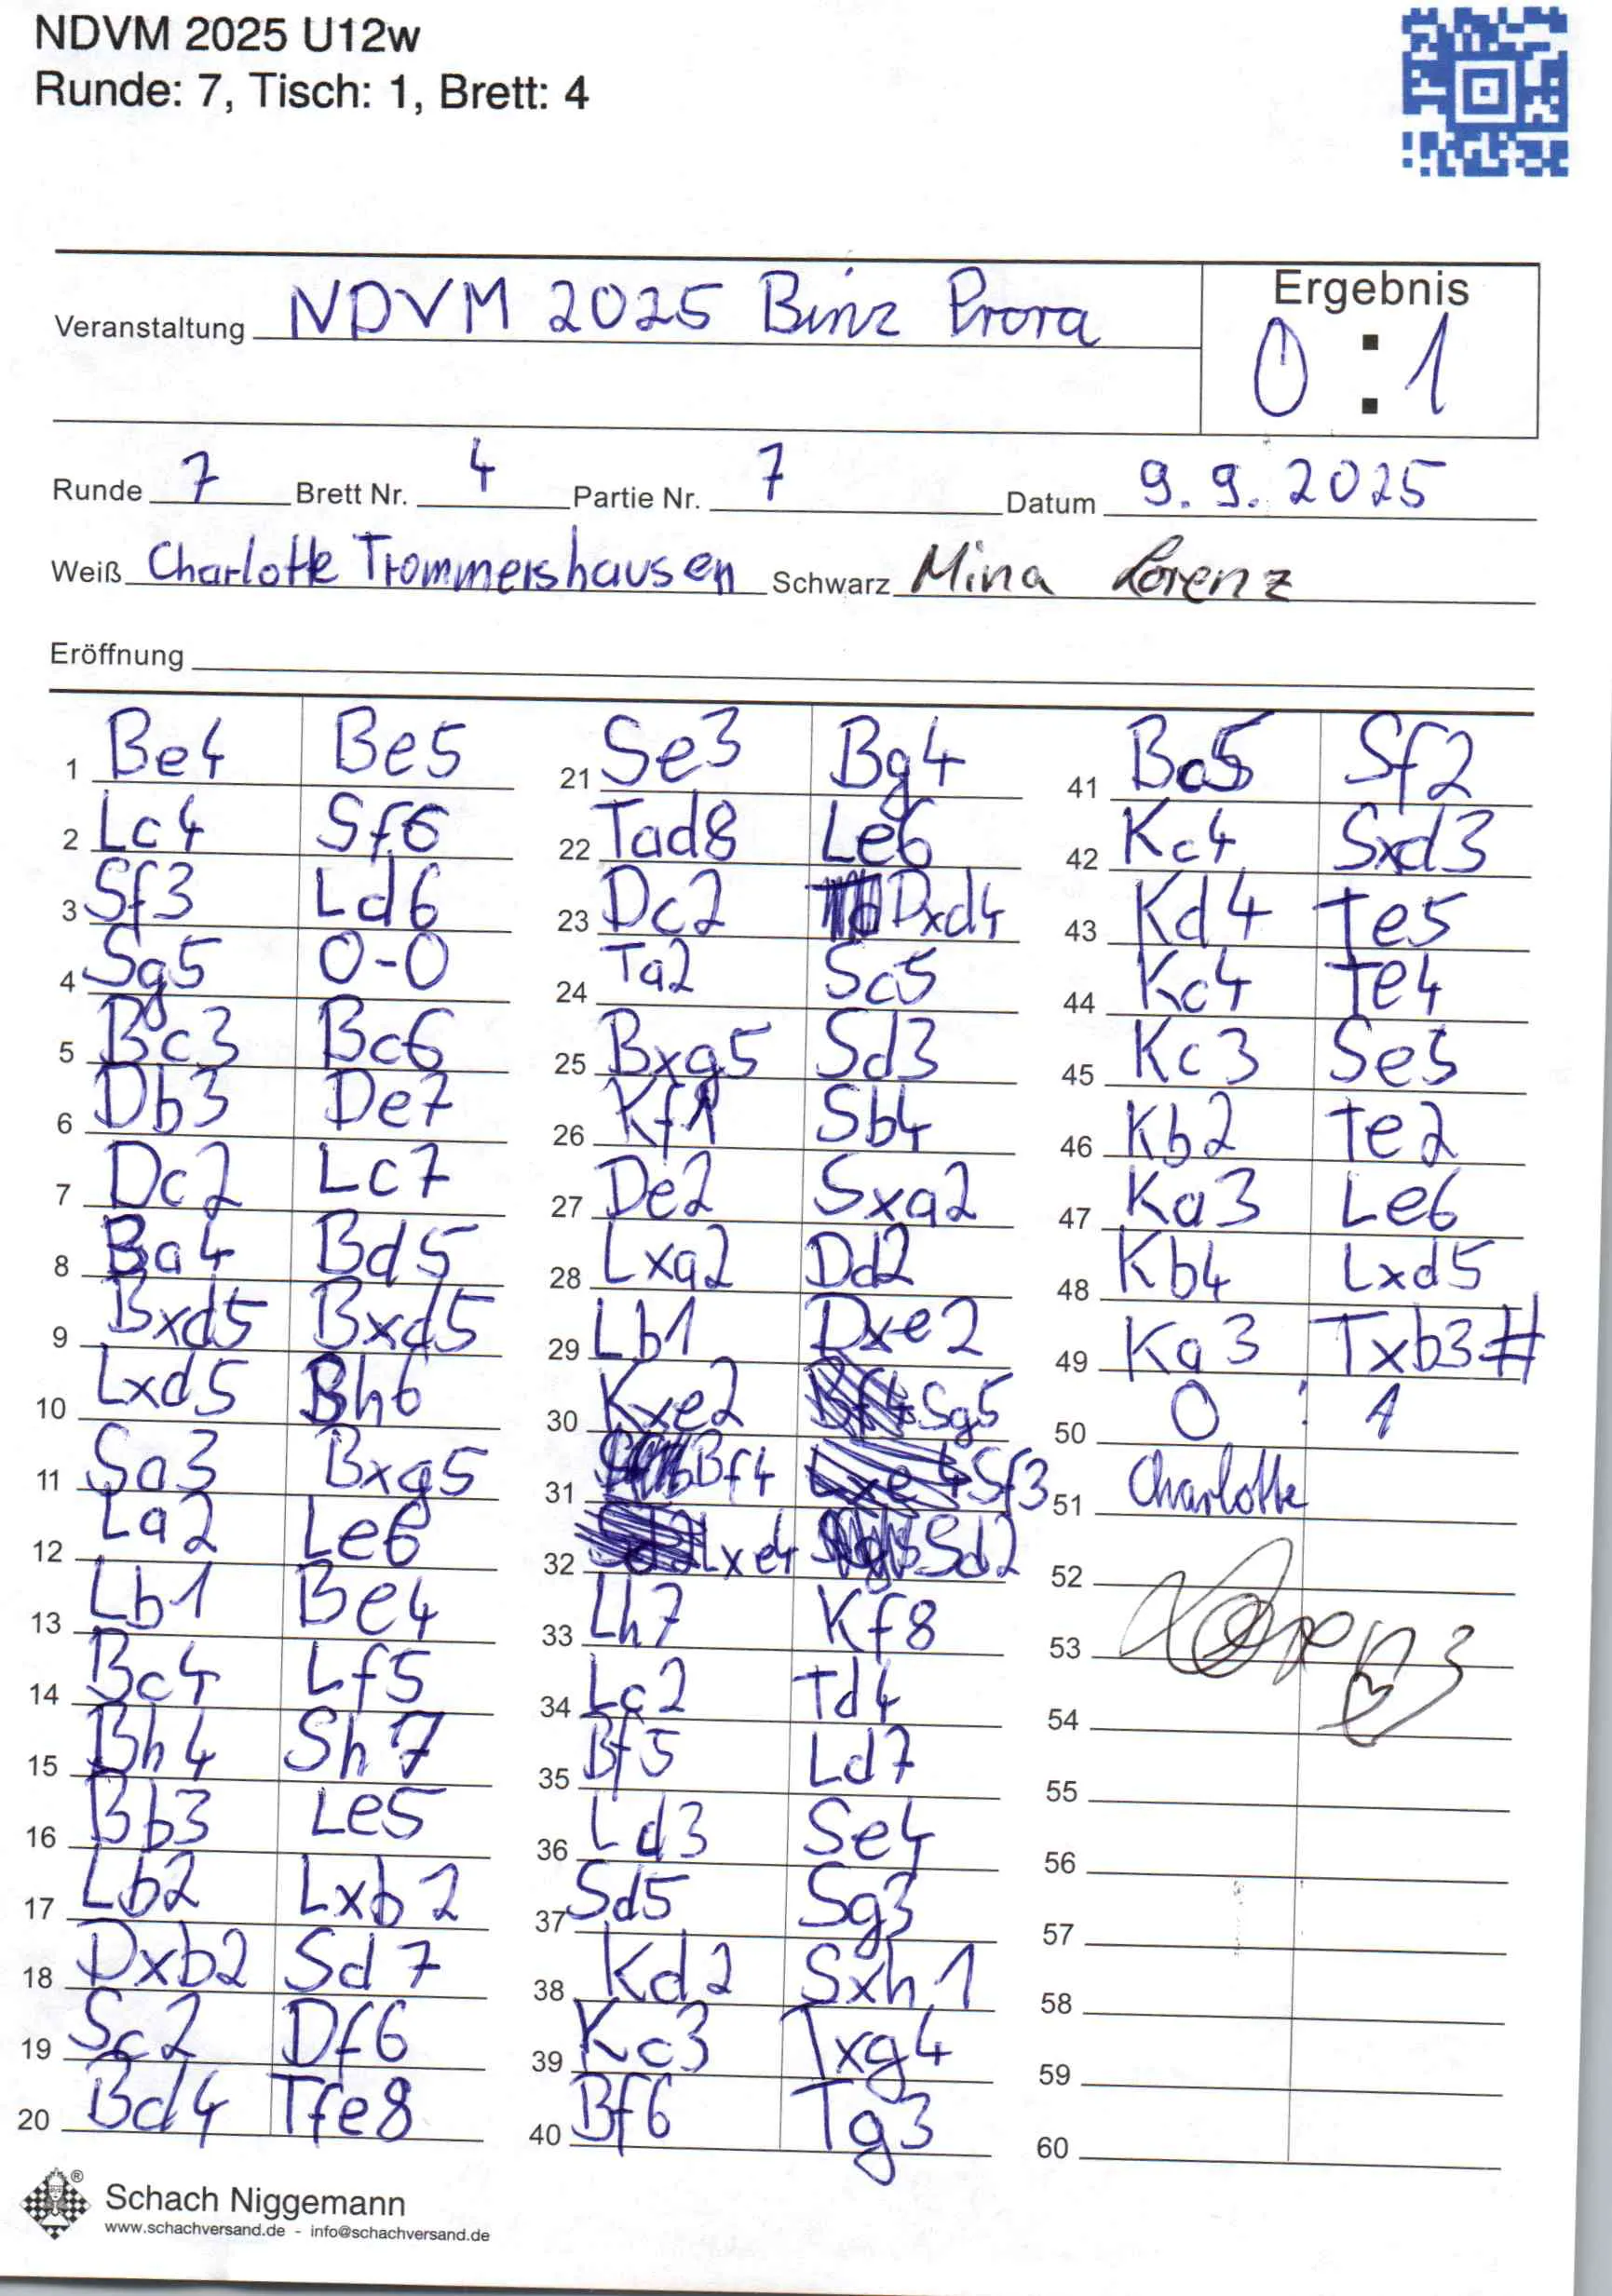 NDVM 2025 U12w
Runde: 7, Tisch: 1, Brett: 4
Veranstaltung NDVM 2025 Binz Prora
Ergebnis
0 : 1
Runde 7 Brett Nr. 4 Partie Nr. 7 Datum 9.9.2025
Weiß Charlotte Trommershausen Schwarz Mina Lorenz
Eröffnung
1 Be4 Be5
2 Lc4 Sf6
3 Sf3 Ld6
4 Sg5 0-0
5 Bc3 Bc6
6 Db3 De7
7 Dc2 Lc7
8 Ba4 Bd5
9 Bxd5 Bxd5
10 Lxd5 Bh6
11 Sa3 Bxg5
12 La2 Le6
13 Lb1 Be4
14 Bc4 Lf5
15 Bh4 Sh7
16 Bb3 Le5
17 Lb2 Lxb2
18 Dxb2 Sd7
19 Sc2 Df6
20 Bd4 Tfe8
21 Se3 Bg4
22 Tad8 Le6
23 Dc2 Dxd4
24 Ta2 Sc5
25 Bxg5 Sd3
26 Kf1 Sb4
27 De2 Sxa2
28 Lxa2 Dd2
29 Lb1 Dxe2
30 Kxe2 Sg5
31 Bf4 Sf3
32 Lxe4 Sd2
33 Lh7 Kf8
34 Lc2 Td4
35 Bf5 Ld7
36 Ld3 Se4
37 Sd5 Sg3
38 Kd2 Sxh1
39 Kc3 Txg4
40 Bf6 Tg3
41 Ba5 Sf2
42 Kc4 Sxd3
43 Kd4 Te5
44 Kc4 Te4
45 Kc3 Se5
46 Kb2 Te2
47 Ka3 Le6
48 Kb4 Lxd5
49 Ka3 Txb3#
50 0 : 1
51 Charlotte
52
53 Lorenz
54
55
56
57
58
59
60
Schach Niggemann
www.schachversand.de - info@schachversand.de